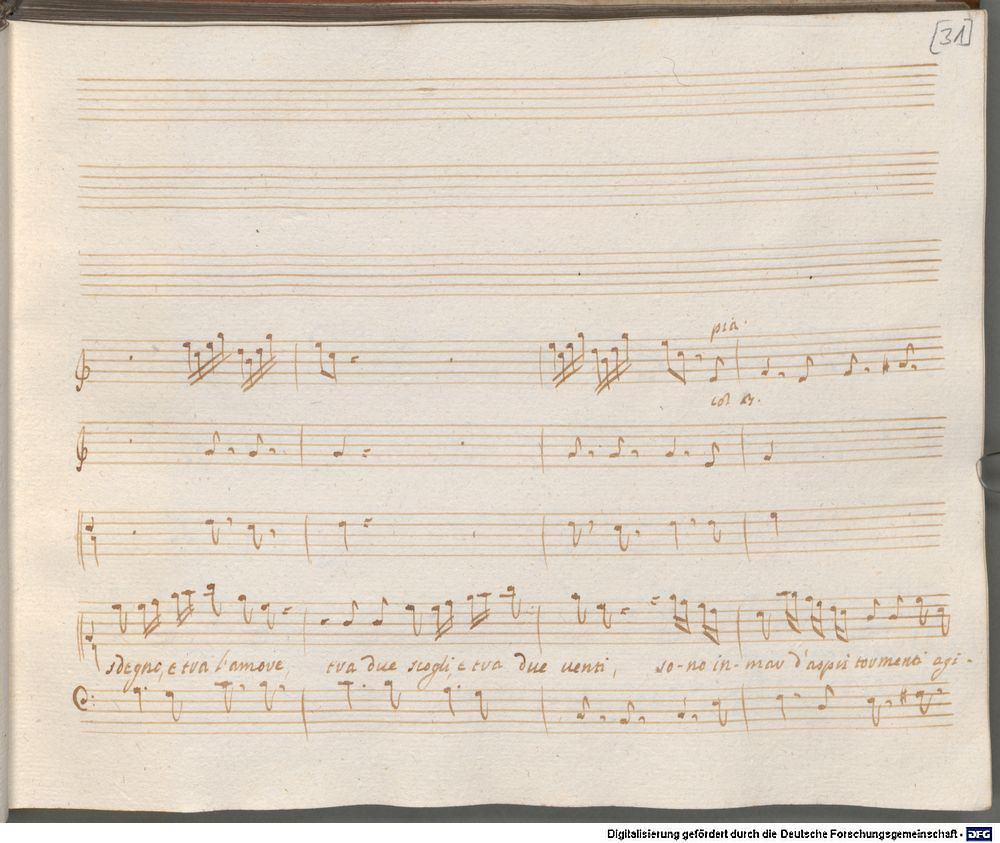 [31]
pia.
col B.
sdegno, e tra l'amore, tra due scogli, e tra due venti, so-no in-mar d'aspri tormenti agi-
Digitalisierung gefördert durch die Deutsche Forschungsgemeinschaft - DFG